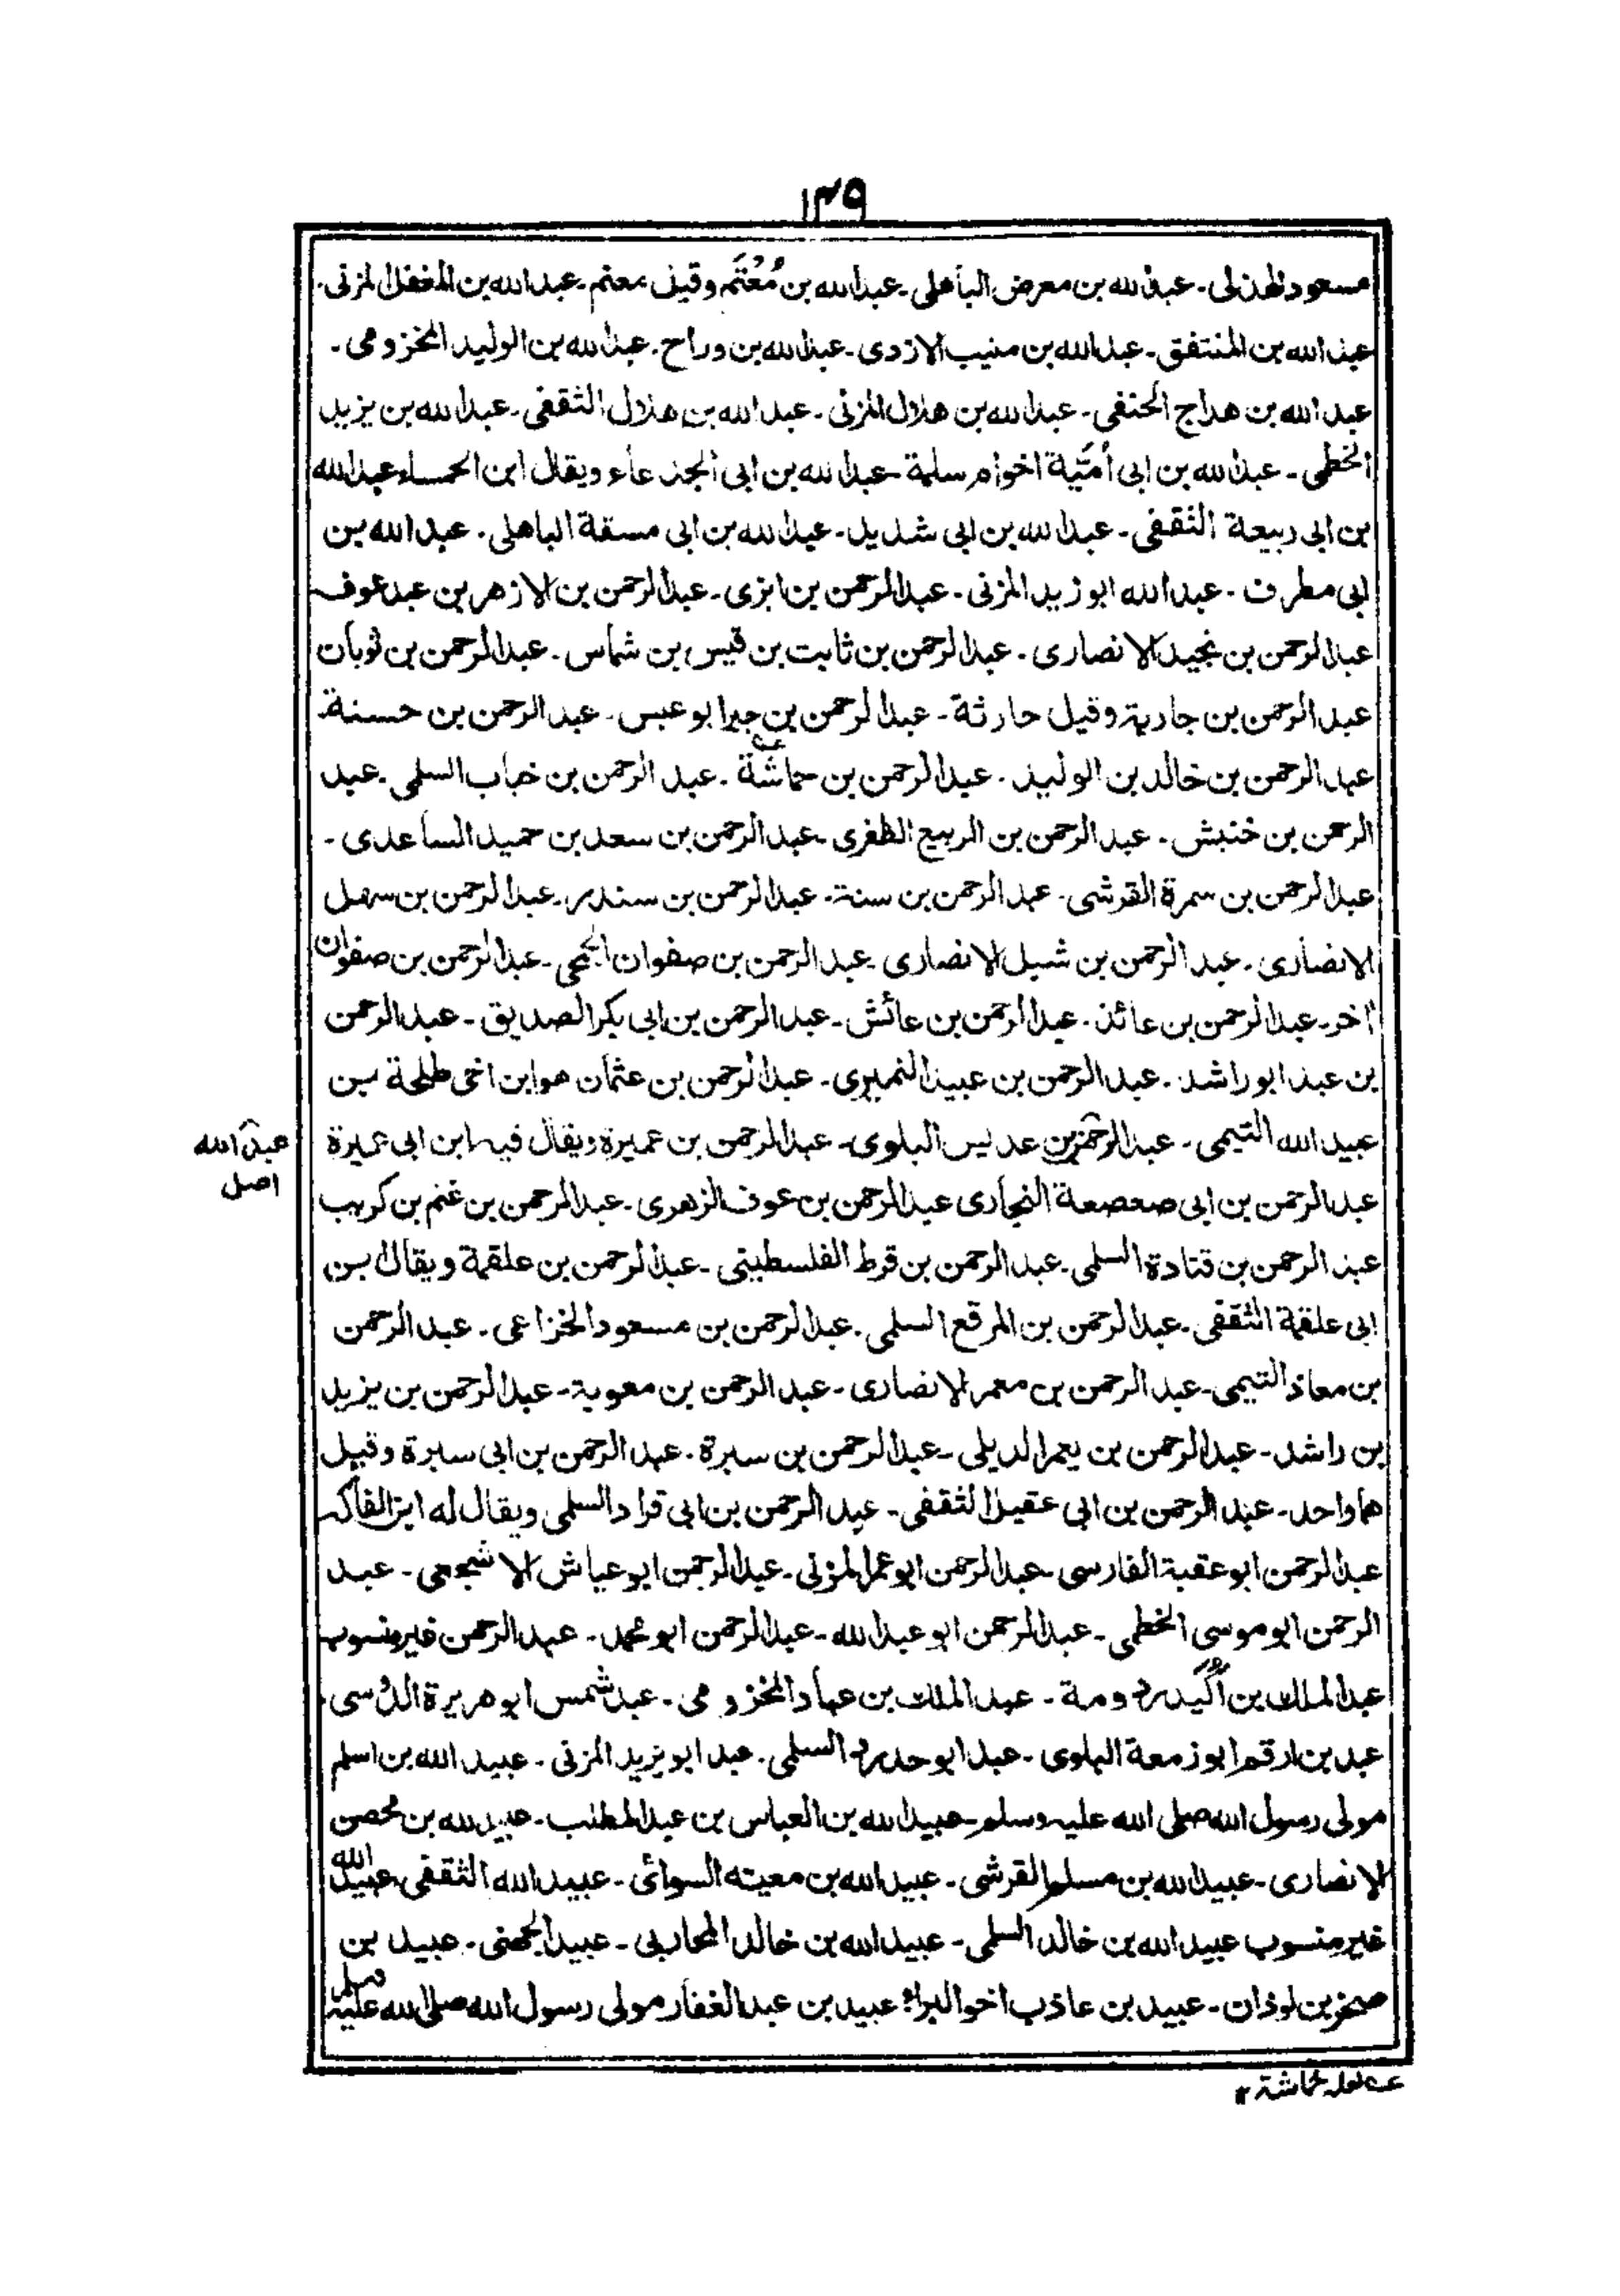 ١٣٩
مسعود الهذلى۔ عبد الله بن معرض الباهلى۔ عبد الله بن مُعْتَم وقيل معتم۔ عبد الله بن المغفل المزنى۔
عبد الله بن المنتفق۔ عبد الله بن منيب الازدى۔ عبد الله بن وراح۔ عبد الله بن الوليد المخزومى۔
عبد الله بن هداج الحنفى۔ عبد الله بن هلال المزنى۔ عبد الله بن هلال الثقفى۔ عبد الله بن يزيد
الخطمى۔ عبد الله بن ابى أمَيّة اخوام سلمة۔ عبد الله بن ابى الجذعاء ويقال ابن الحمساء عبد الله
بن ابى ربيعة الثقفى۔ عبد الله بن ابى شديد۔ عبد الله بن ابى مسقة الباهلى۔ عبد الله بن
ابى مطرف۔ عبد الله ابو زيد المزنى۔ عبد الرحمن بن ابزى۔ عبد الرحمن بن الازهر بن عبد عوف
عبد الرحمن بن نجيد الانصارى۔ عبد الرحمن بن ثابت بن قيس بن شماس۔ عبد الرحمن بن ثوبان
عبد الرحمن بن جارية وقيل حارثة۔ عبد الرحمن بن جبر ابو عبس۔ عبد الرحمن بن حسنة۔
عبد الرحمن بن خالد بن الوليد۔ عبد الرحمن بن حماشة عـه۔ عبد الرحمن بن خباب السلمى۔ عبد
الرحمن بن خنبش۔ عبد الرحمن بن الربيع الظفرى۔ عبد الرحمن بن سعد بن حميد الساعدى۔
عبد الرحمن بن سمرة القرشى۔ عبد الرحمن بن سنة۔ عبد الرحمن بن سندر۔ عبد الرحمن بن سهل
الانصارى۔ عبد الرحمن بن شبل الانصارى۔ عبد الرحمن بن صفوان الجمحى۔ عبد الرحمن بن صفوان
اخر۔ عبد الرحمن بن عائذ۔ عبد الرحمن بن عائش۔ عبد الرحمن بن ابى بكر الصديق۔ عبد الرحمن
بن عبد ابو راشد۔ عبد الرحمن بن عبيد النميرى۔ عبد الرحمن بن عثمان هو ابن اخى طلحة بن
عبيد الله التيمى۔ عبد الرحمن بن عديس البلوى۔ عبد الرحمن بن عميرة ويقال فيه ابن ابى عميرة
عبد الله
اصل
عبد الرحمن بن ابى صعصعة النجارى عبد الرحمن بن عوف الزهرى۔ عبد الرحمن بن غنم بن كريب
عبد الرحمن بن قتادة السلمى۔ عبد الرحمن بن قرط الفلسطينى۔ عبد الرحمن بن علقمة ويقال بن
ابى علقمة الثقفى۔ عبد الرحمن بن المرقع السلمى۔ عبد الرحمن بن مسعود الخزاعى۔ عبد الرحمن
بن معاذ التيمى۔ عبد الرحمن بن معمر الانصارى۔ عبد الرحمن بن معوية۔ عبد الرحمن بن يزيد
بن راشد۔ عبد الرحمن بن يعمر الديلى۔ عبد الرحمن بن سبرة۔ عبد الرحمن بن ابى سبرة وقيل
هما واحد۔ عبد الرحمن بن ابى عقيل الثقفى۔ عبد الرحمن بن ابى قراد السلمى ويقال له ابن الفاكه
عبد الرحمن ابو عقبة الفارسى۔ عبد الرحمن ابو عمر المزنى۔ عبد الرحمن ابو عياش الاشجعى۔ عبد
الرحمن ابو موسى الخطمى۔ عبد الرحمن ابو عبد الله۔ عبد الرحمن ابو محمد۔ عبد الرحمن غير منسوب
عبد الملك بن أكيدر دومة۔ عبد الملك بن عباد المخزومى۔ عبد شمس ابو هريرة الدوسى
عبد بن ارقم ابو زمعة البلوى۔ عبد ابو حدرد السلمى۔ عبد ابو يزيد المزنى۔ عبيد الله بن اسلم
مولى رسول الله صلى الله عليه وسلم۔ عبيد الله بن العباس بن عبد المطلب۔ عبيد الله بن محصن
الانصارى۔ عبيد الله بن مسلم القرشى۔ عبيد الله بن معية السوائى۔ عبيد الله الثقفى۔ عبيد الله
غير منسوب عبيد الله بن خالد السلمى۔ عبيد الله بن خالد المحاربى۔ عبيد الجهنى۔ عبيد بن
صخر بن لوذان۔ عبيد بن عازب اخو البراء۔ عبيد بن عبد الغفار مولى رسول الله صلى الله عليه وسلم
عـه لعله خماشة ١٢